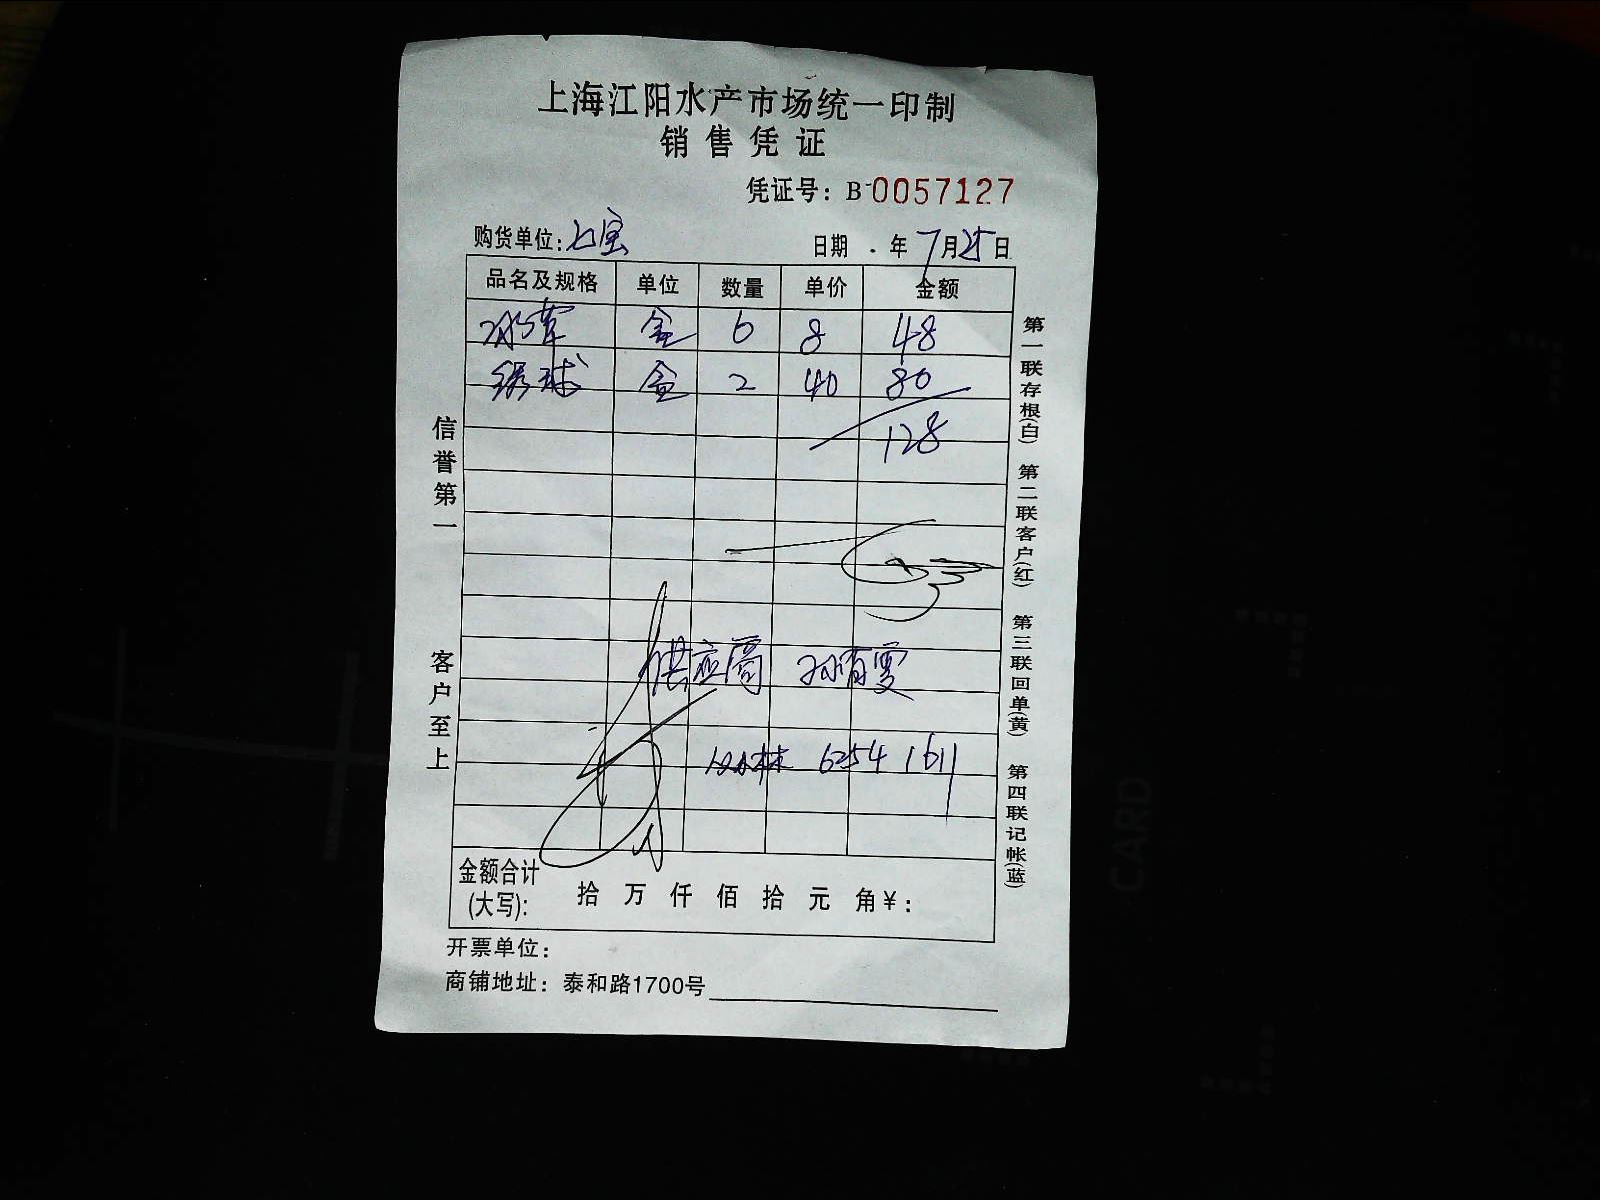 上海江阳水产市场统一印制
销售凭证
凭证号：B 0057127
购货单位：七宝 日期 年7月25日
品名及规格 单位 数量 单价 金额
冰草 盒 6 8 48
绣球 盒 2 40 80
128
供应商 孙育雯
62541611
金额合计(大写)： 拾 万 仟 佰 拾 元 角￥：
开票单位：
商铺地址：泰和路1700号
信誉第一
客户至上
第一联存根(白) 第二联客户(红) 第三联回单(黄) 第四联记帐(蓝)